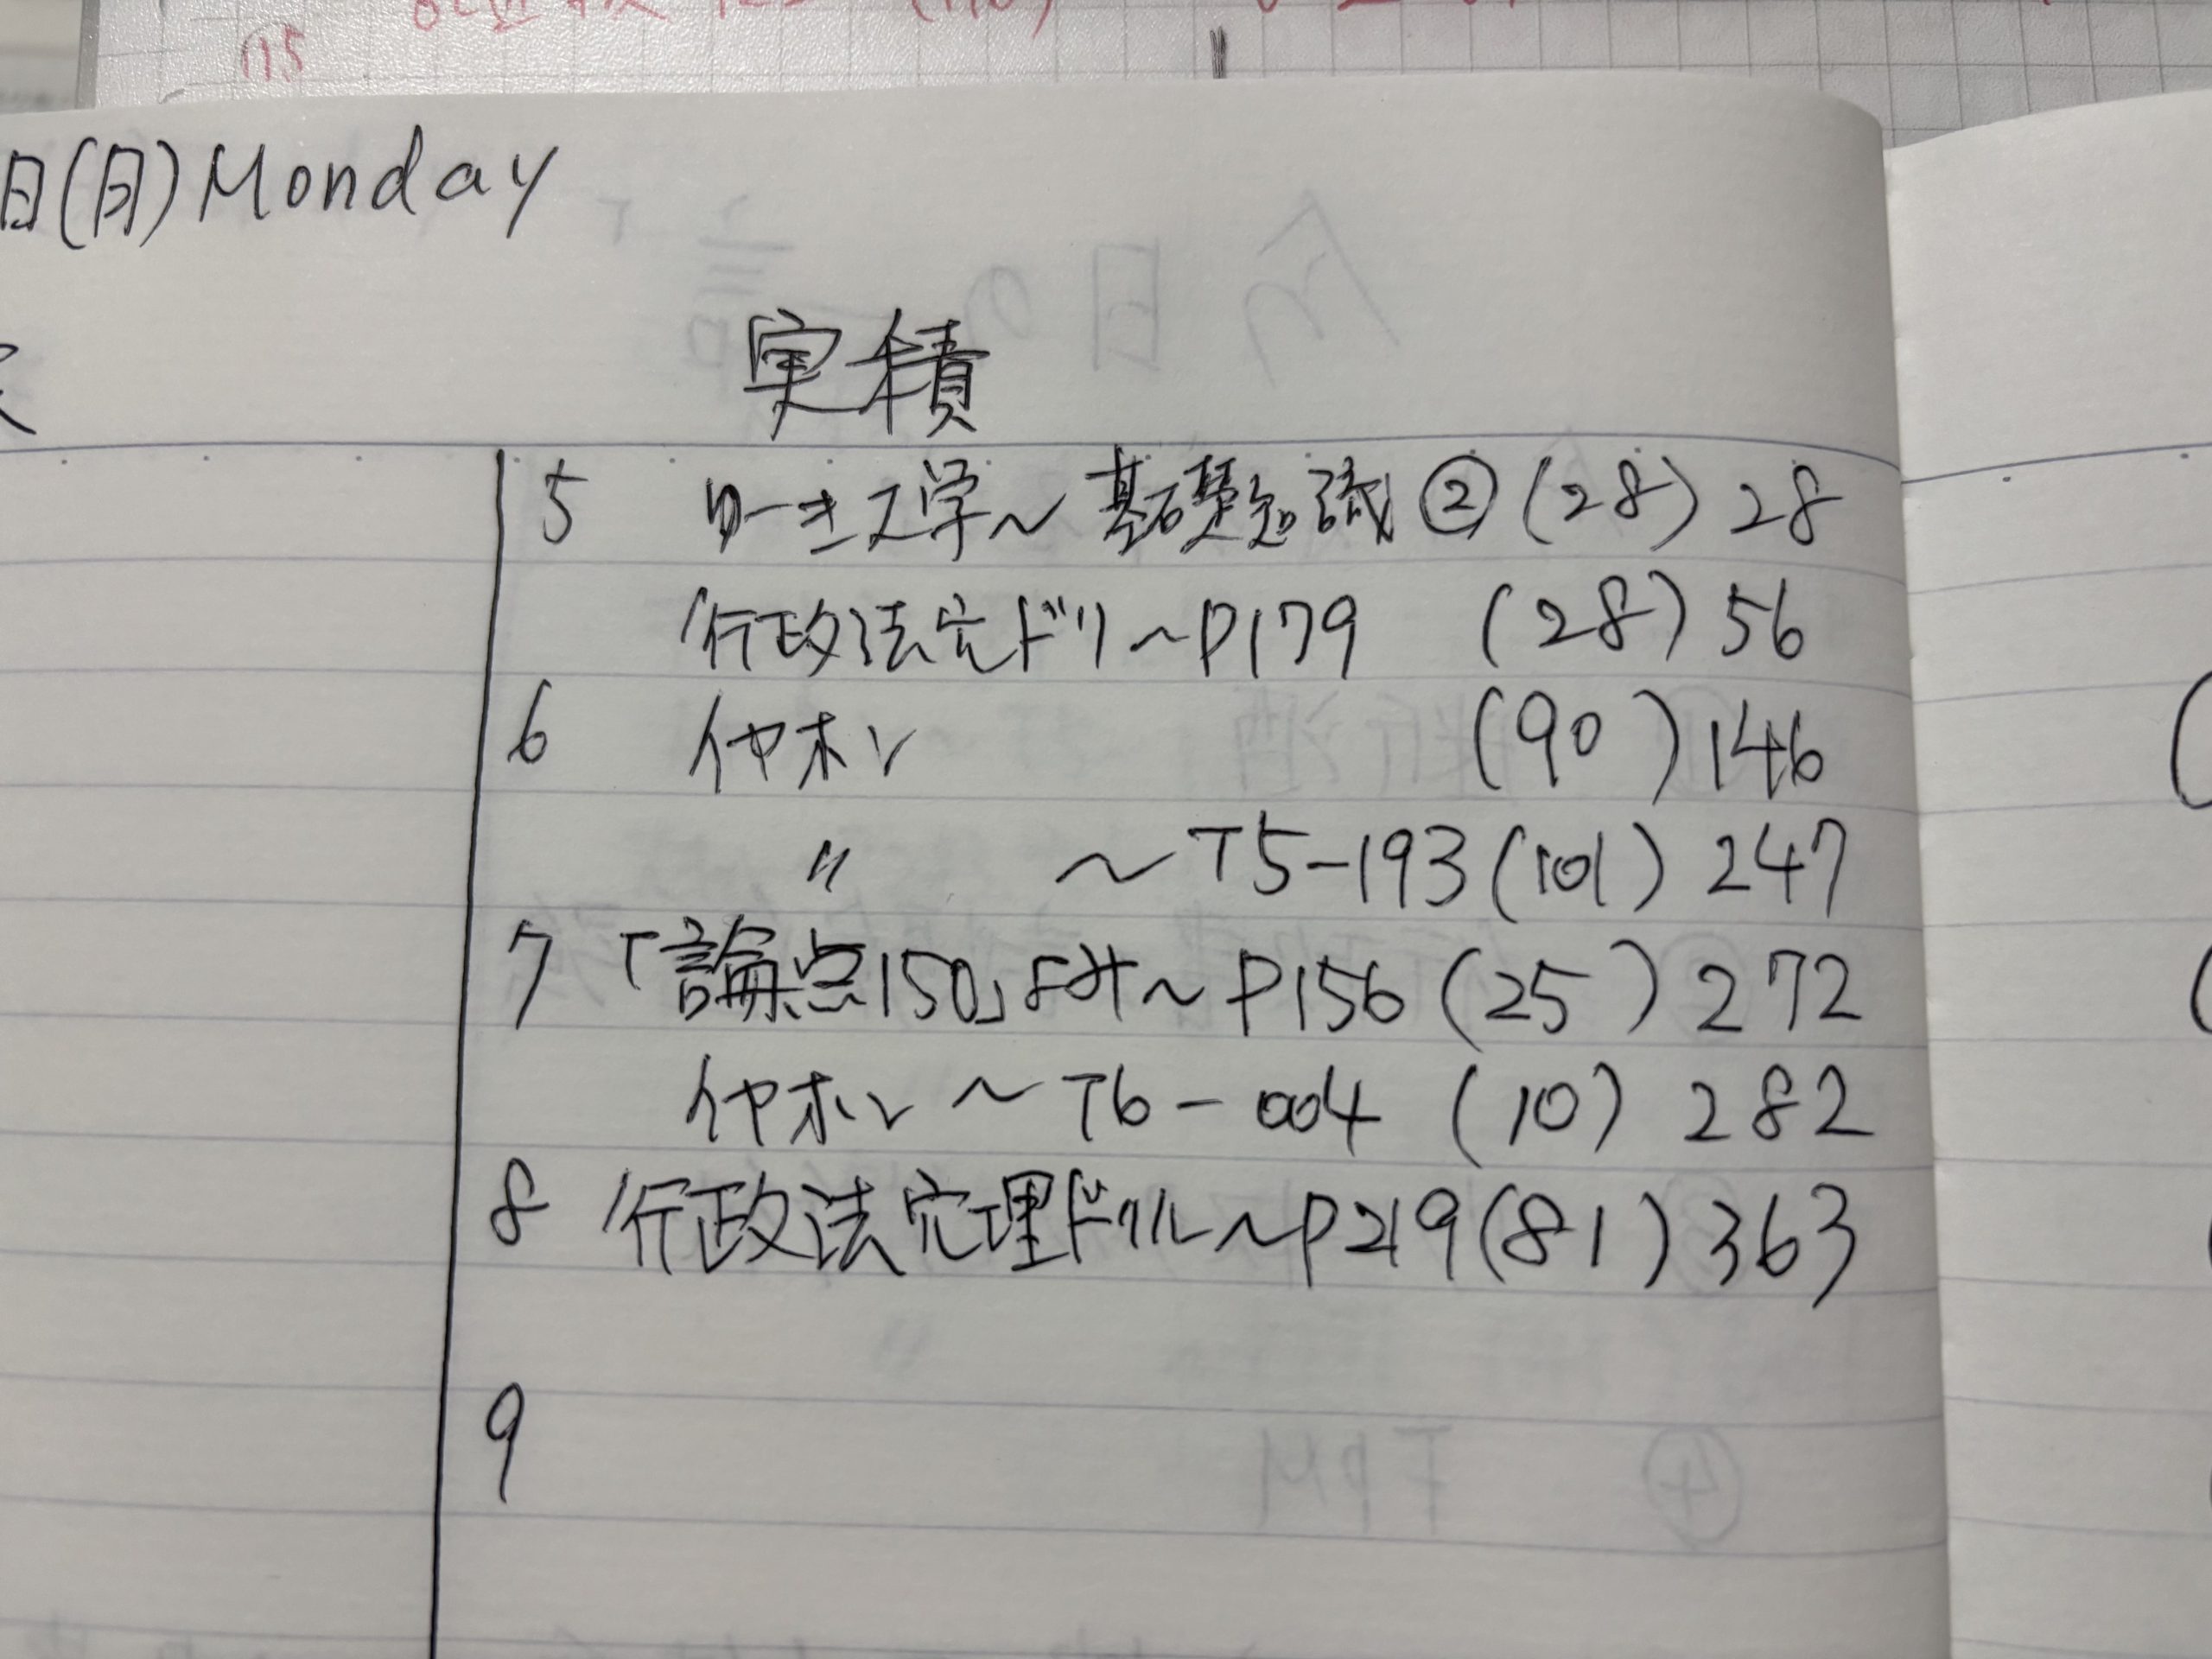 115
日(月) Monday
実積
5 ゆーき大学～基礎知識②(28) 28
行政法穴ドリ～P179 (28) 56
6 イヤホン (90) 146
〃 ～T5-193 (101) 247
7 「論点150」読み～P156 (25) 272
イヤホン～T6-004 (10) 282
8 行政法穴埋ドリル～P219 (81) 363
9